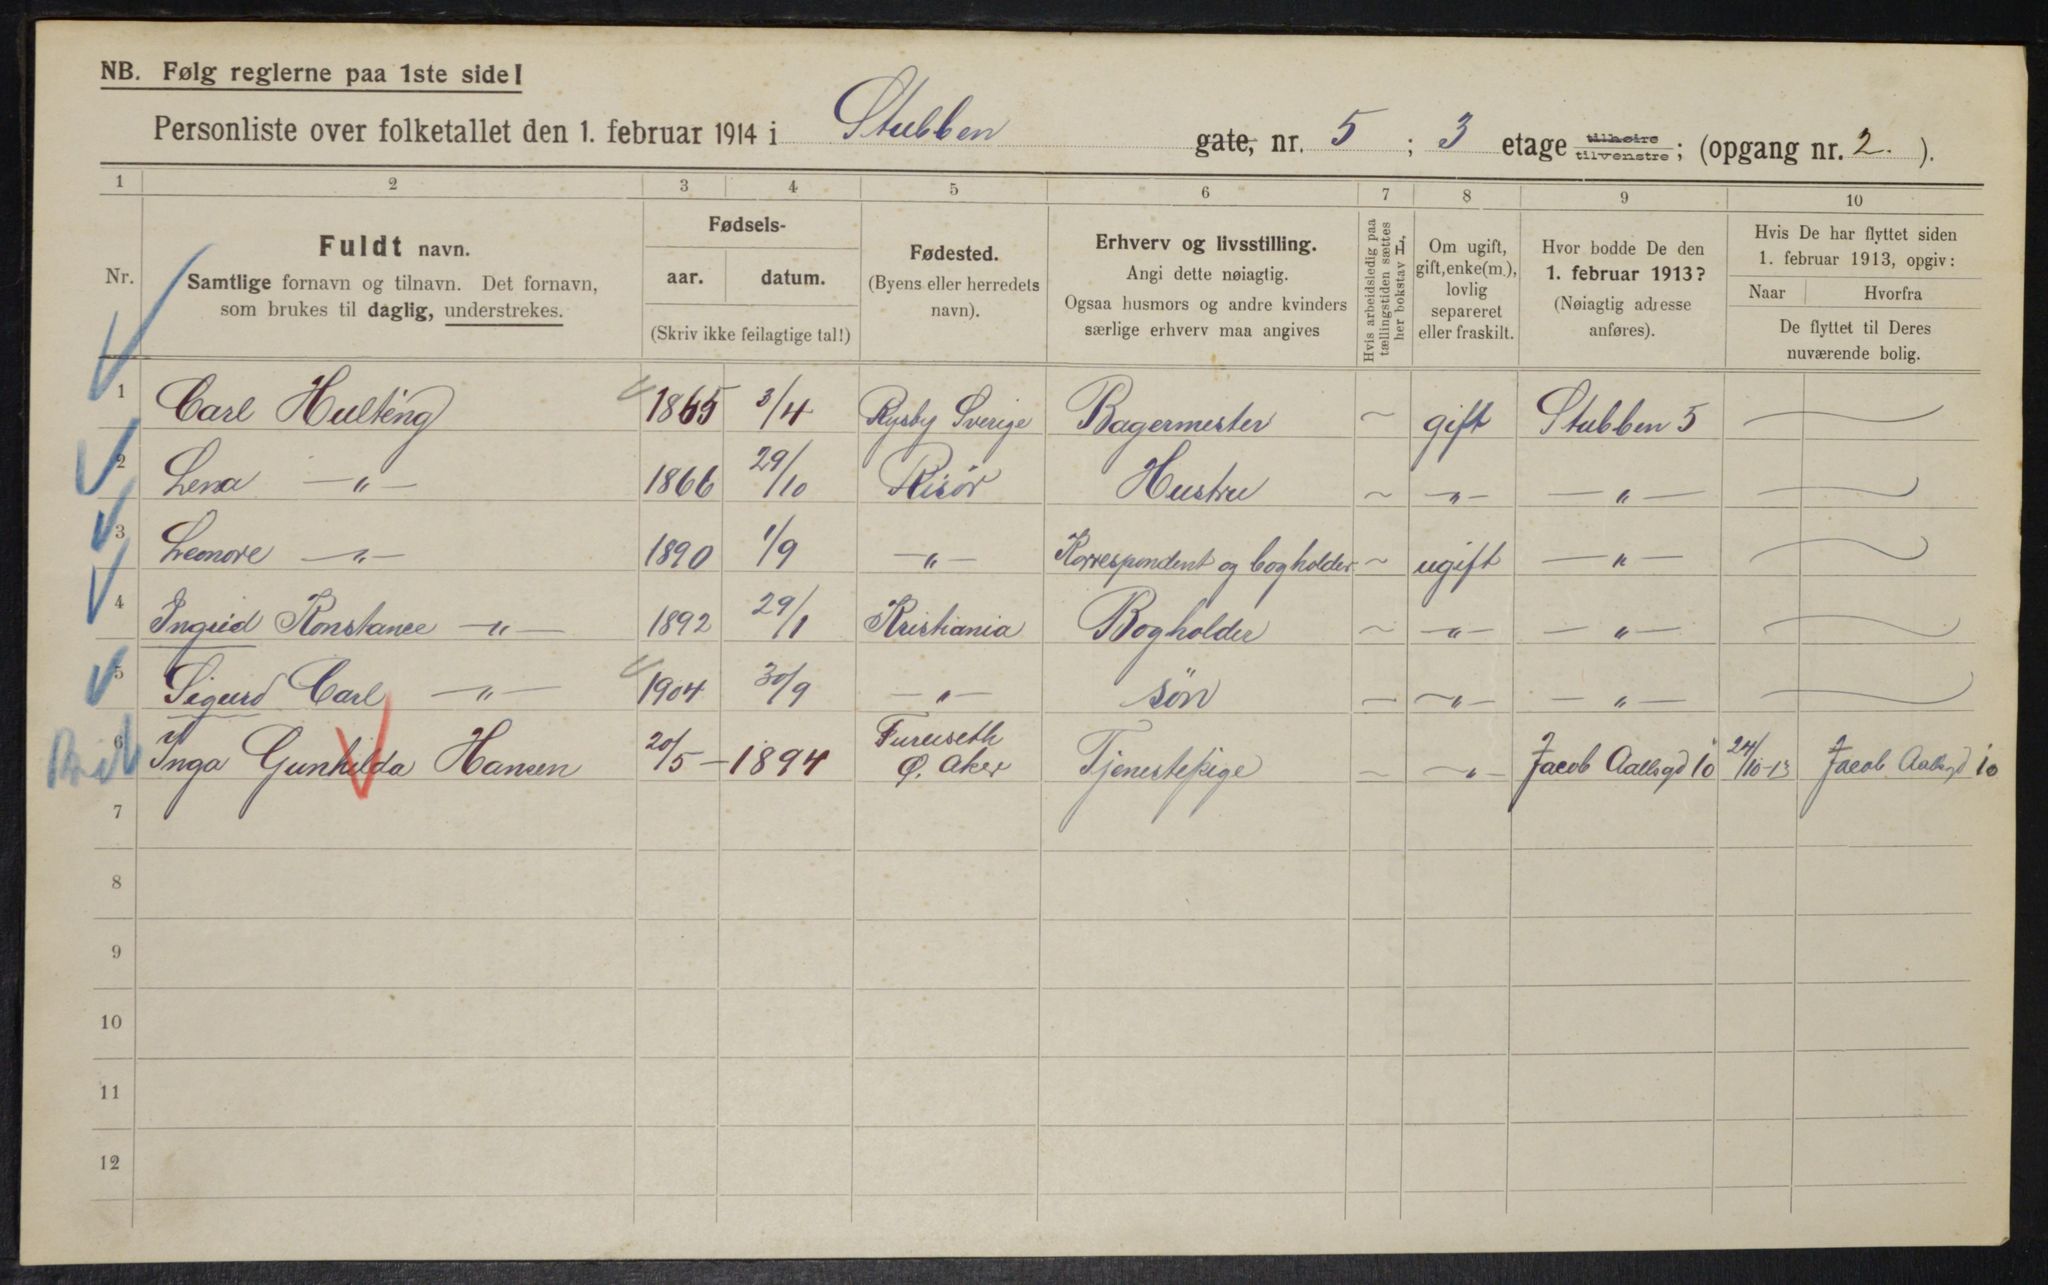 NB. Følg reglerne paa 1ste side!
Personliste over folketallet den 1. februar 1914 i Stubben gate, nr. 5 ; 3 etage tilhøire tilvenstre; (opgang nr. 2. ).
1 2 3 4 5 6 7 8 9 10
Nr.
Fuldt navn.
Samtlige fornavn og tilnavn. Det fornavn,
som brukes til daglig, understrekes.
Fødsels-
aar. datum.
(Skriv ikke feilagtige tal!)
Fødested.
(Byens eller herredets
navn).
Erhverv og livsstilling.
Angi dette nøiagtig.
Ogsaa husmors og andre kvinders
særlige erhverv maa angives
Hvis arbeidsledig paa
tællingstiden sættes
her bokstav L.
Om ugift,
gift, enke(m.),
lovlig
separeret
eller fraskilt.
Hvor bodde De den
1. februar 1913?
(Nøiagtig adresse
anføres).
Hvis De har flyttet siden
1. februar 1913, opgiv:
Naar Hvorfra
De flyttet til Deres
nuværende bolig.
1 Carl Hulténg 1865 3/4 Rysby Sverige Bagermester ~ gift Stubben 5 —
2 Lena —"— 1866 29/10 Risør Hustru ~ —"— —"— —
3 Leonore —"— 1890 1/9 —"— Korrespondent og bogholder ~ ugift —"— —
4 Ingrid Konstance —"— 1892 29/1 Kristiania Bogholder ~ —"— —"— —
5 Sigurd Carl —"— 1904 30/9 —"— søn — —"— —"— —
6 Inga Gunhilda Hansen 20/5 — 1894 Furuseth Ø. Aker Tjenestepige ~ —"— Jacob Aallsgd 10 24/10-13 Jacob Aallsgd 10
7
8
9
10
11
12